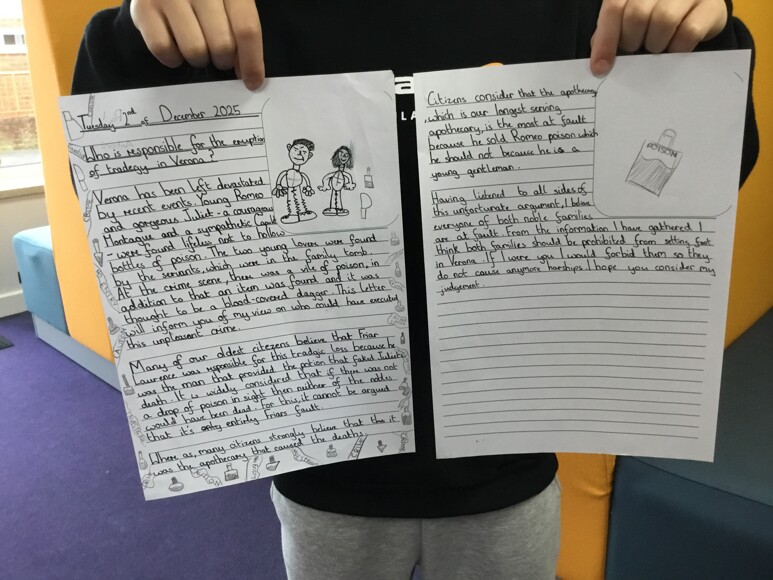 Tuesday 2nd of December 2025
Who is responsible for the eruption
of tradegy in Verona?
Verona has been left devastated
by recent events. Young Romeo
and gorgeous Juliet - a courageous
Montague and a sympathetic Capulet
- were found lifeless not to hollow
bottles of poison. The two young lovers were found
by the servants, which were in the family tomb.
At the crime scene, there was a vile of poison, in
addition to that an item was found and it was
thought to be a blood-covered dagger. This letter
will inform you of my view on who could have executed
this unpleasent crime.
Many of our oldest citizens believe that Friar
Lawrence was responsible for this tradgic loss because he
was the man that provided the potion that faked Juliet's
death. It is widely considered that if there was not
a drop of poison in sight then neither of the nobles
would have been dead. For this, it cannot be argued
that it's only entirely Friars fault.
Where as, many citizens strongly believe that this it
was the apothecary that caused the deaths.
Citizens consider that the apothecary,
which is our longest serving
apothecary, is the most at fault
because he sold Romeo poison which
he should not because he is a
young gentleman.
POISON
Having listened to all sides of
this unfortunate argument, I believe
everyone of both noble families
are at fault. From the information I have gathered I
think both families should be prohibited from setting foot
in Verona. If I were you I would forbid them so they
do not cause anymore harships. I hope you consider my
judgement.